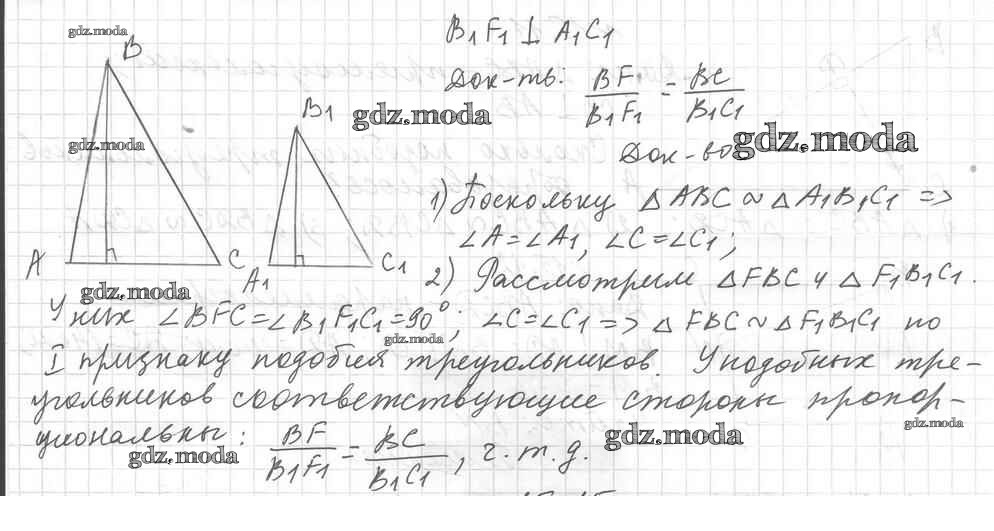 gdz.moda
B
B₁F₁ ⊥ A₁C₁
Док-ть: BF/B₁F₁ = BC/B₁C₁
B₁
gdz.moda
gdz.moda
Док-во
gdz.moda
1) Поскольку △ABC ~ △A₁B₁C₁ =>
∠A=∠A₁, ∠C=∠C₁;
A C A₁ C₁
2) Рассмотрим △FBC и △F₁B₁C₁.
gdz.moda
У них ∠BFC=∠B₁F₁C₁=90°; ∠C=∠C₁=> △FBC~△F₁B₁C₁ по
gdz.moda
I признаку подобия треугольников. У подобных тре-
угольников соответствующие стороны пропор-
gdz.moda
циональны: BF/B₁F₁ = BC/B₁C₁, ч.т.д.
gdz.moda
gdz.moda